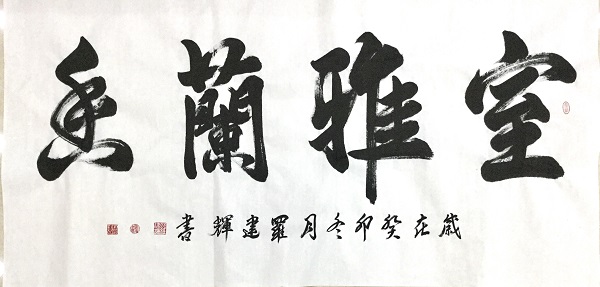 室雅蘭香
歲在癸卯冬月羅建輝書